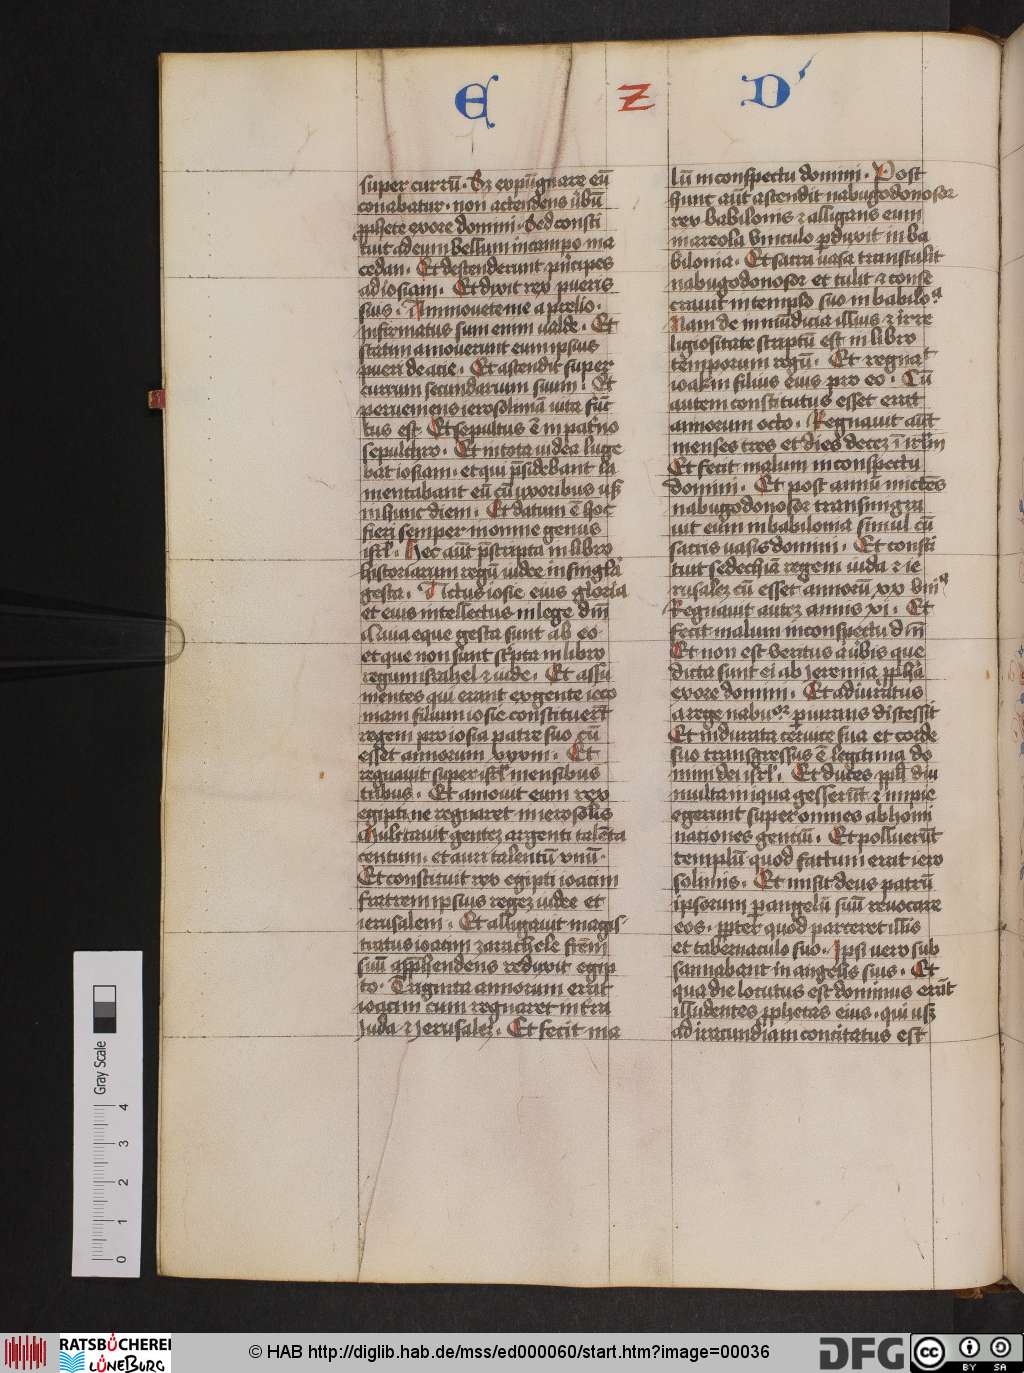 E Z D
super currū. Sz expūgnare eū
conabatur. non attendens ūbū
ꝓphete exore domini. Sed consti
tuit ad eum bellum in campo ma
cedan. Et descenderunt pͥncipes
ad iosiam. Et dixit rex pueris
suis. Ammouete me a prelio.
Infirmatus sum enim ualde. Et
statim amouerunt eum ipsius
pueri de acie. Et ascendit super
currum secundarium suum. Et
perueniens ierosolimā uita fūc
tus est Et sepultus ē in pat̄no
sepulchro. Et in tota iudea luge
bāt iosiam. et qui p̄sidebant la
mentabant eū cū uxoribus usq̄
in hunc diem. Et datum ē hoc
fieri semper in omne genus
isrl̄. Hec aūt p̄scripta in libro
historiarum regū iudee in singl̄a
gesta. Actus iosie eius gloria
et eius intellectus in lege dn̄i
Quia eque gesta sunt ab eo
et que non sunt sc̄pta in libro
regum israhel ⁊ iude. Et assu
mentes qui erant ex gente ieco
niam filium iosie constituer̄t
regem pro iosia patre suo cū
esset annorum xxxiii. Et
regnauit super isrl̄ mensibus
tribus. Et amouit eum rex
egipti ne regnaret in ierosolis
Mulctauit gentez argenti talēta
centum. et auri talentū vnū.
Et constituit rex egipti ioacim
fratrem ipsius regez iudee et
ierusalem. Et alligauit magis
tratus ioacim zarachele fr̄em
suū app̄hendens reduxit egip
to. Triginta annorum erat
ioacim cum regnaret in tr̄a
Juda ⁊ Jerusalez. Et fecit ma
lū in conspectu domini. Post
hunc aūt ascendit nabugodonosor
rex babilonis ⁊ alligans eum
in areola vinculo ꝑduxit in ba
bilonia. Et sacra uasa transtulit
nabugodonosor et tulit ⁊ conse
crauit in templo suo in babiloᵃ
Nam de inmūdicia illius ⁊ irre
ligiositate scriptū est in libro
temporum regū. Et regnaᵗ
ioakim filius eius pro eo. Cū
autem constitutus esset erat
annorum octo. Regnauit aūt
menses tres et dies decez ī irlm̄
Et fecit malum in conspectu
domini. Et post annū mictēs
nabugodonosor transmigra
uit eum in babilonia simul cū
sacris uasis domini. Et consti
tuit sedechiā regem iuda ⁊ ie
rusalez cū esset annorū xx vniꝰ
Regnauit autez annis xi. Et
fecit malum in conspectu dn̄i
Et non est veritus a ūbis que
dicta sunt ei ab Jeremia ꝓph̄a
exore domini. Et adiuratus
a rege nabuᵒʳ ꝑiurans discessit
Et indurata ceruice sua et corde
suo transgressus ē legitima do
mini dei isrl̄. Et duces ppl̄i dn̄i
multa iniqua gesserūt ⁊ impie
egerunt super omnes abhomi
nationes gentiū. Et polluerūt
templū quod factum erat iero
solimis. Et misit deus patrū
ipsorum ꝑ angelū suū reuocare
eos. ꝓpter quod parceret illis
et tabernaculo suo. Ipsi uero sub
sannabant in angelis suis. Et
qua die locutus est dominus erāt
illudentes ꝓphetas eius. qui usq̄
ad iracundiam concitatus est
Gray Scale
0 1 2 3 4
RATSBÜCHEREI
LÜNEBURG
© HAB http://diglib.hab.de/mss/ed000060/start.htm?image=00036
DFG
cc BY SA